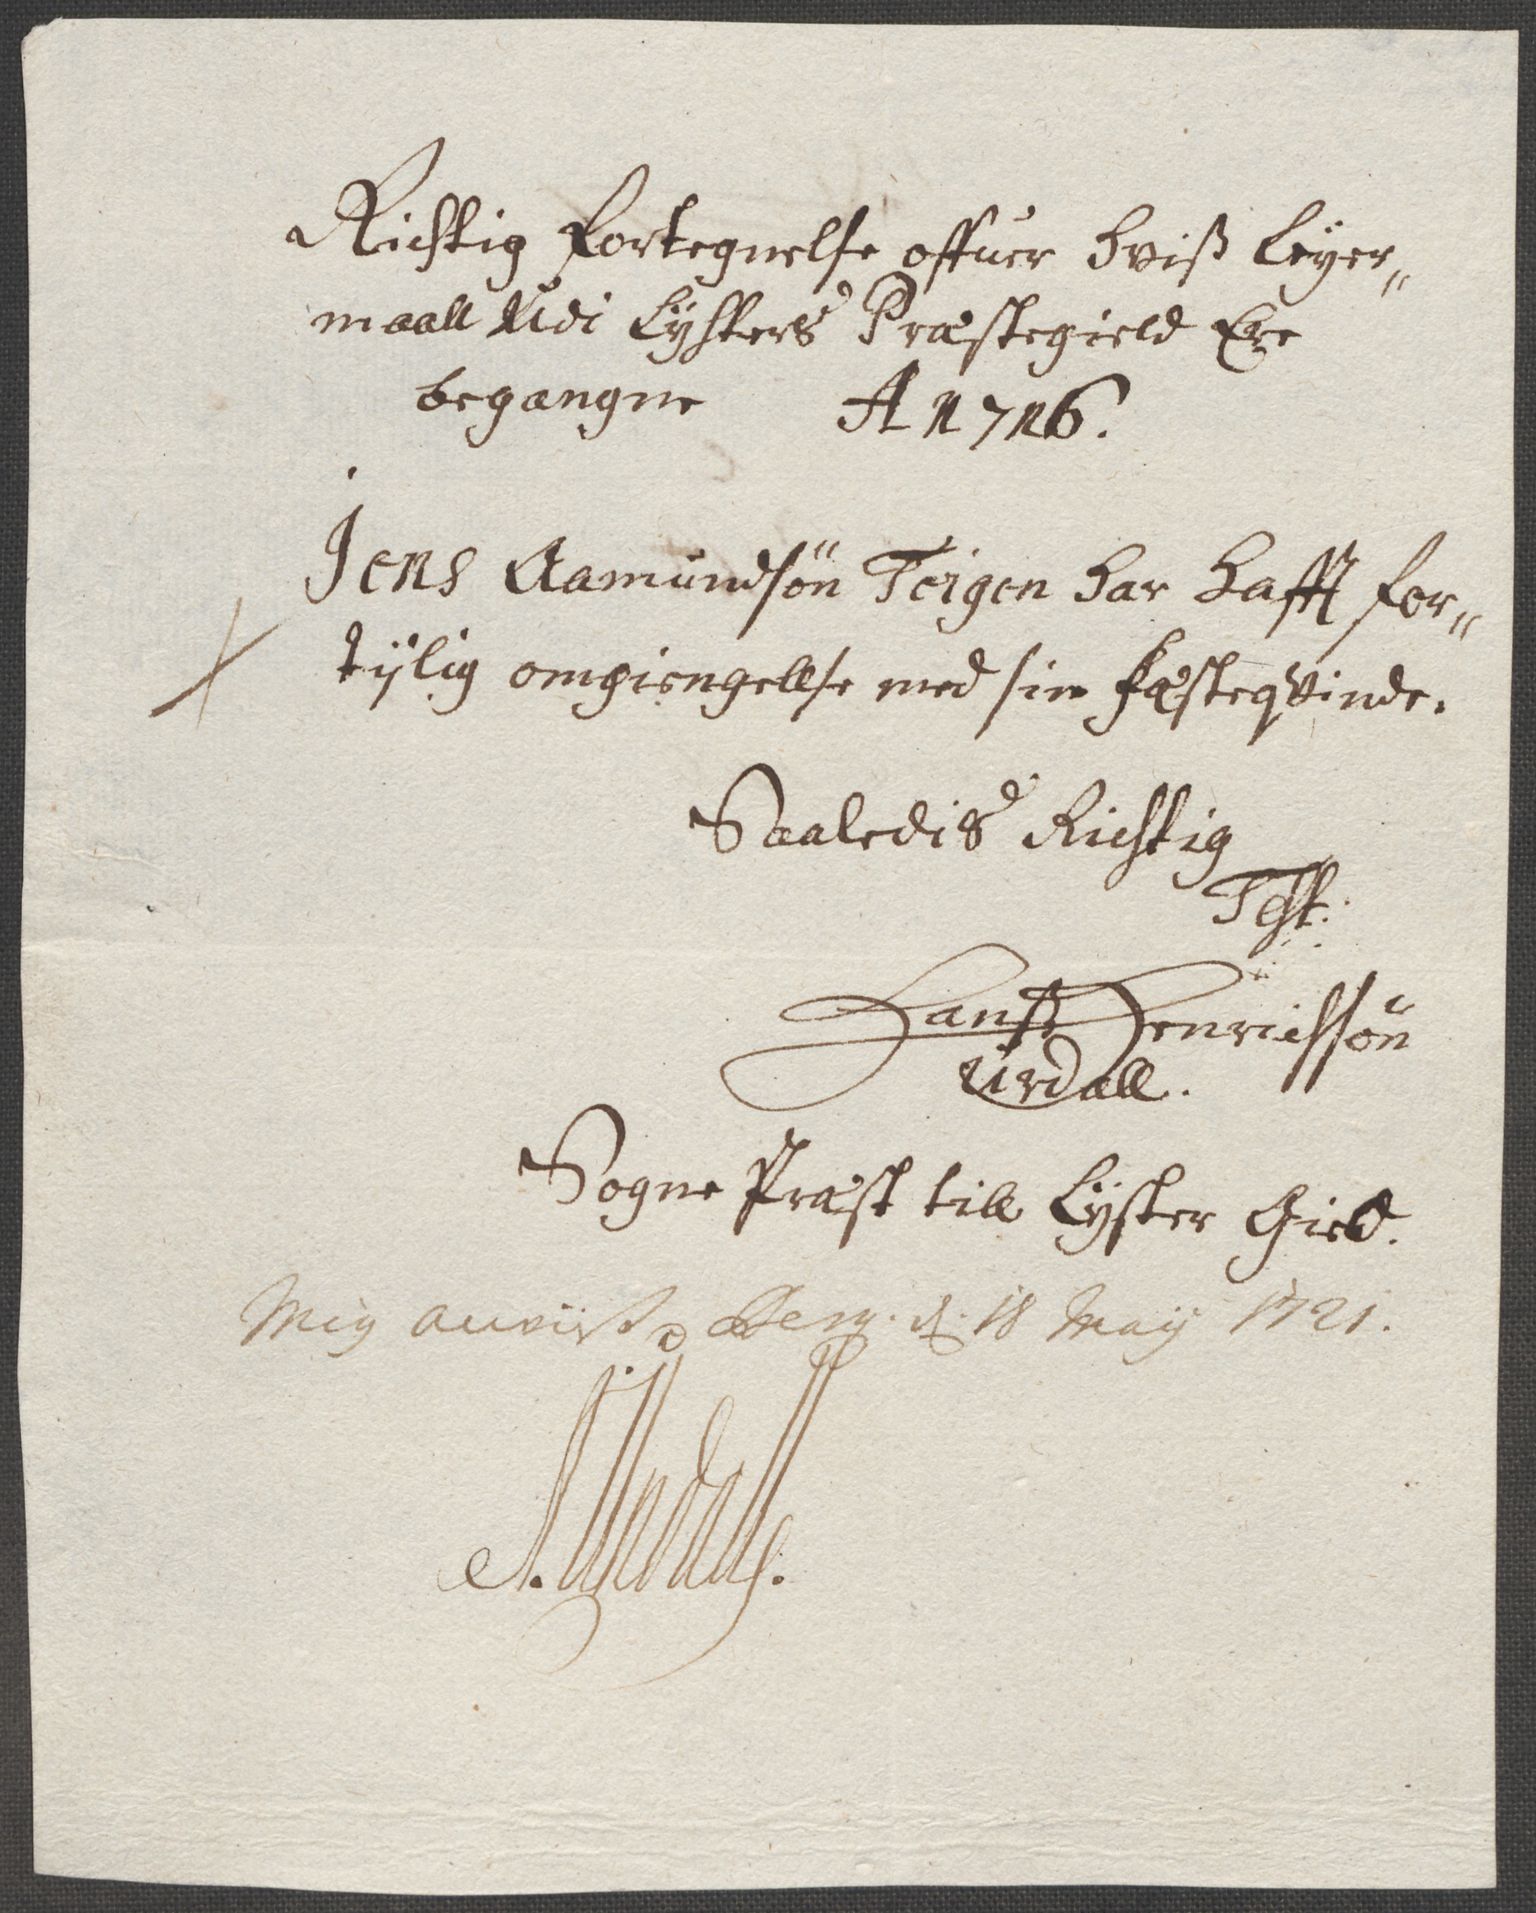 Richtig fortegnelse offuer hviß Leyer„
maall Udi Lysters Præstegield Ere
begangne A 1716.
Jens Aamundsön Teigen har hafft for„
tijlig omgiengellse med sin fæsteqvinde.
Saaledis Richtig
Test:
Hanß Henrichsön
Urdall.
Sogne Præst till Lyster Gield.
Mig anvist d. 18 Maij 1721.